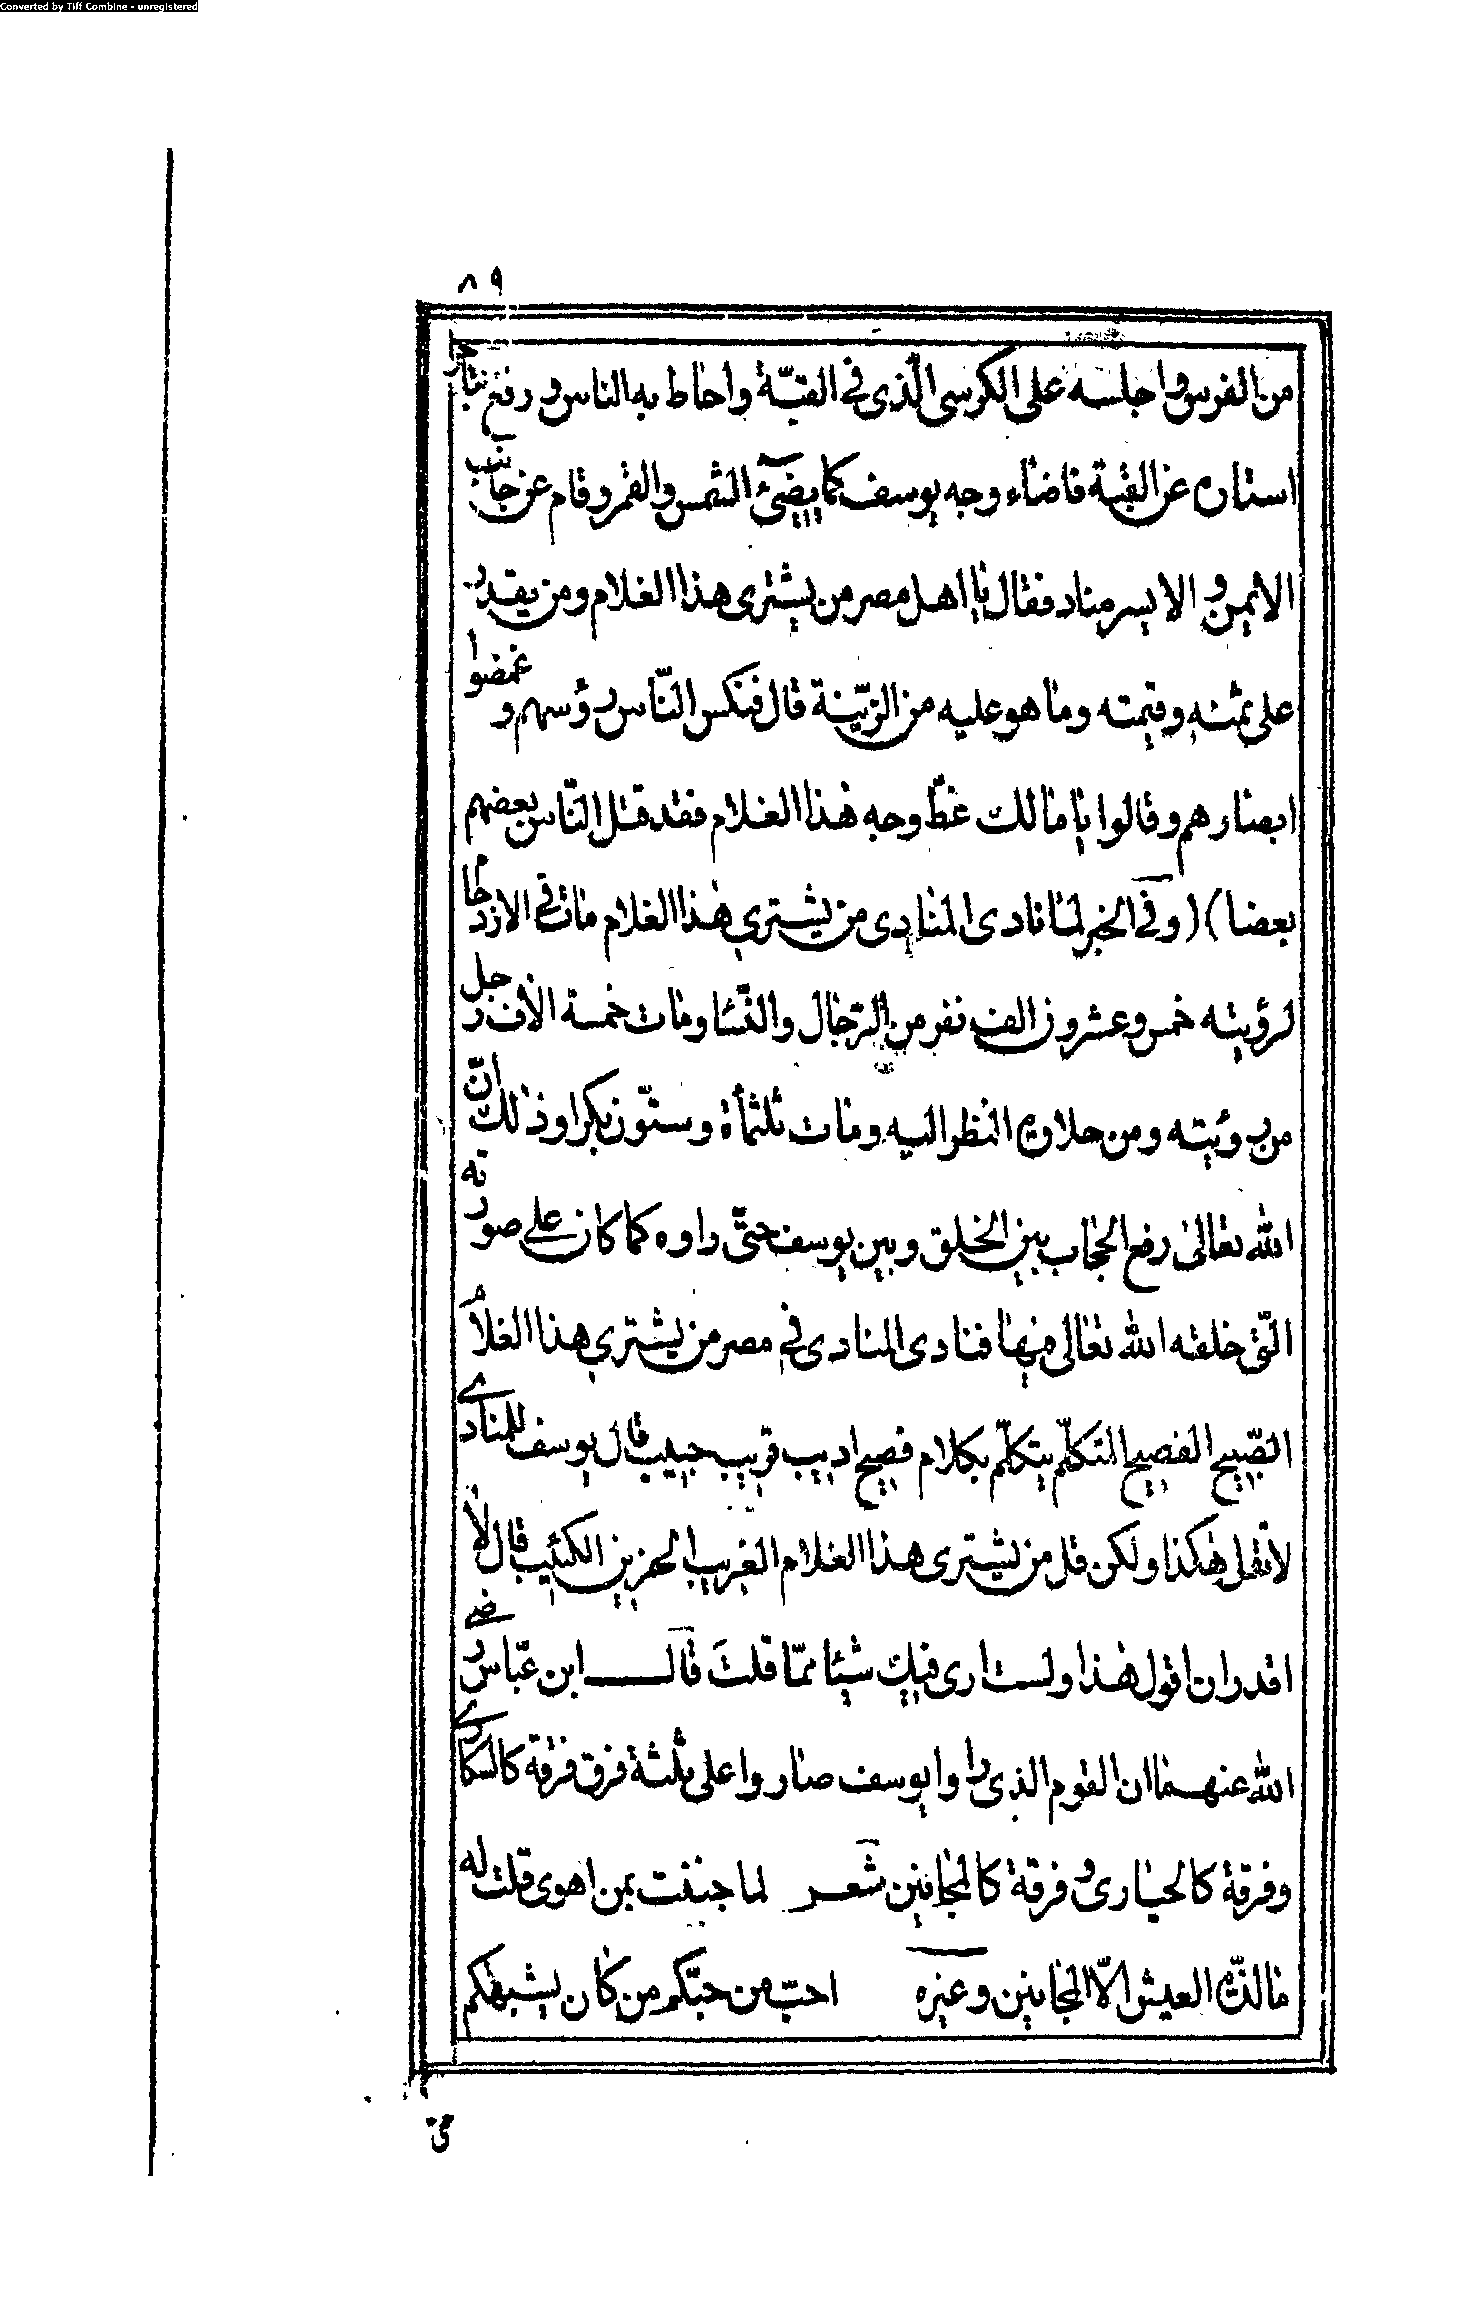 Converted by Tiff Combine - unregistered
٨٩
من الفرس واجلسه على الكرسى الّذى فى القبّة واحاط به الناس ورفع
استاره عن القبة فاضاء وجه يوسف كما يضئ الشمس والقمر وقام عن جانب
الايمن والايسر مناد فقال يا اهل مصر من يشترى هذا الغلام ومن يقدر
على ثمنه وقيمته وما هو عليه من الزّينة قال فنكس النّاس رؤسهم وغمضوا
ابصارهم وقالوا يا مالك غطّ وجه هذا الغلام فقد قتل النّاس بعضهم
بعضا) (وفى الخبر لما نادى المنادى من يشترى هذا الغلام مات فى الازدحام
لرؤيته خمس وعشرون الف نفر من الرّجال والنّسا ومات خمسة الاف رجل
من رؤيته ومن حلاوة النظر اليه ومات ثلثمأة وستّون بكرا وذلك انّ
الله تعالى رفع الحجاب بين الخلق وبين يوسف حتّى راوه كما كان على صورته
الّتى خلقه الله تعالى فيها فنادى المنادى فى مصر من يشترى هذا الغلام
الصّبيح الفصيح المتكلّم يتكلّم بكلام فصيح اديب قريب حبيب قال يوسف للمنادى
لا تقل هكذا ولكن قل من يشترى هذا الغلام الغريب الحزين الكئيب قال لا
اقدر ان اقول هذا ولست ارى فيك شيئا ممّا قلت قال ابن عبّاس رضى
الله عنهما ان القوم الذى راوا يوسف صاروا على ثلثة فرق فرقة كالسكارى
وفرقة كالحيارى وفرقة كالمجانين شعر لما جننت بمن اهوى قلت له
ما لذّة العيش الّا المجانين وغيره احبّ من حبّكم من كان يشبهكم